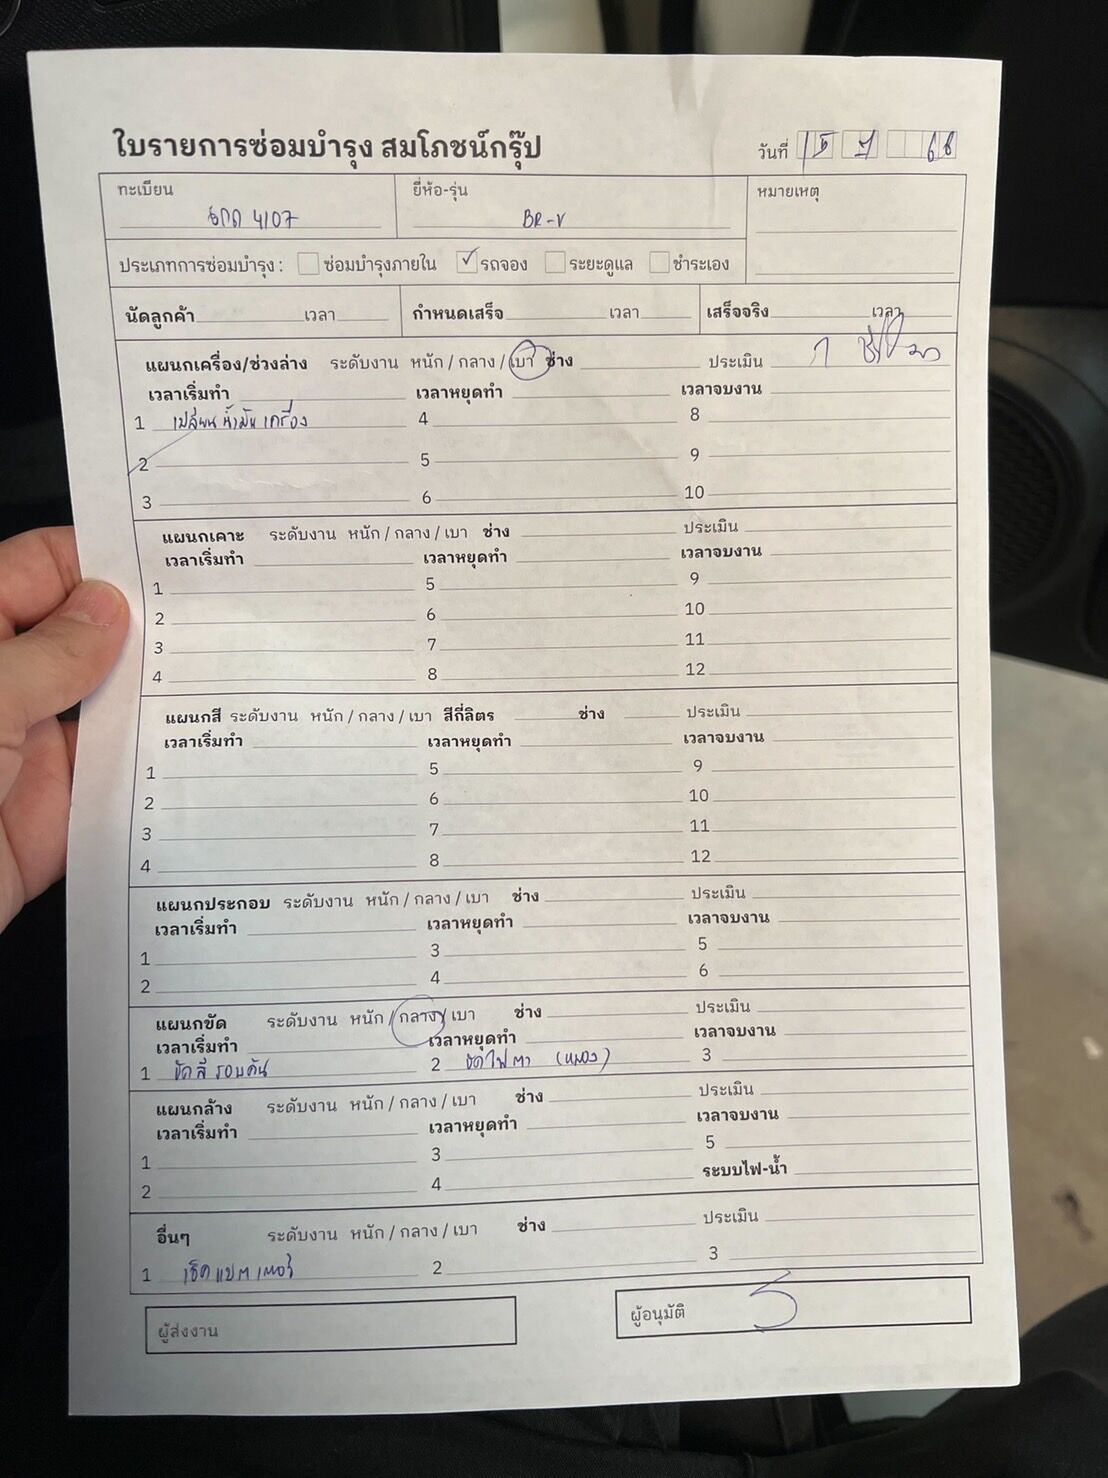 ใบรายการซ่อมบำรุง สมโภชน์กรุ๊ป วันที่ 15 7 66
ทะเบียน ยี่ห้อ-รุ่น หมายเหตุ
4107 BR-V
ประเภทการซ่อมบำรุง : ซ่อมบำรุงภายใน ✓ รถจอง ระยะดูแล ชำระเอง
นัดลูกค้า เวลา กำหนดเสร็จ เวลา เสร็จจริง เวลา
แผนกเครื่อง/ช่วงล่าง ระดับงาน หนัก / กลาง / เบา ช่าง ประเมิน 1 ชั่วโมง
เวลาเริ่มทำ เวลาหยุดทำ เวลาจบงาน
1 เปลี่ยนน้ำมันเครื่อง 4 8
2 5 9
3 6 10
แผนกเคาะ ระดับงาน หนัก / กลาง / เบา ช่าง ประเมิน
เวลาเริ่มทำ เวลาหยุดทำ เวลาจบงาน
1 5 9
2 6 10
3 7 11
4 8 12
แผนกสี ระดับงาน หนัก / กลาง / เบา สีกี่ลิตร ช่าง ประเมิน
เวลาเริ่มทำ เวลาหยุดทำ เวลาจบงาน
1 5 9
2 6 10
3 7 11
4 8 12
แผนกประกอบ ระดับงาน หนัก / กลาง / เบา ช่าง ประเมิน
เวลาเริ่มทำ เวลาหยุดทำ เวลาจบงาน
1 3 5
2 4 6
แผนกขัด ระดับงาน หนัก / กลาง / เบา ช่าง ประเมิน
เวลาเริ่มทำ เวลาหยุดทำ เวลาจบงาน
1 ขัดสีรอบคัน 2 ขัดไฟตา (เหลือง) 3
แผนกล้าง ระดับงาน หนัก / กลาง / เบา ช่าง ประเมิน
เวลาเริ่มทำ เวลาหยุดทำ เวลาจบงาน
1 3 5
2 4 ระบบไฟ-น้ำ
อื่นๆ ระดับงาน หนัก / กลาง / เบา ช่าง ประเมิน
1 เช็คแบตเตอรี่ 2 3
ผู้ส่งงาน ผู้อนุมัติ